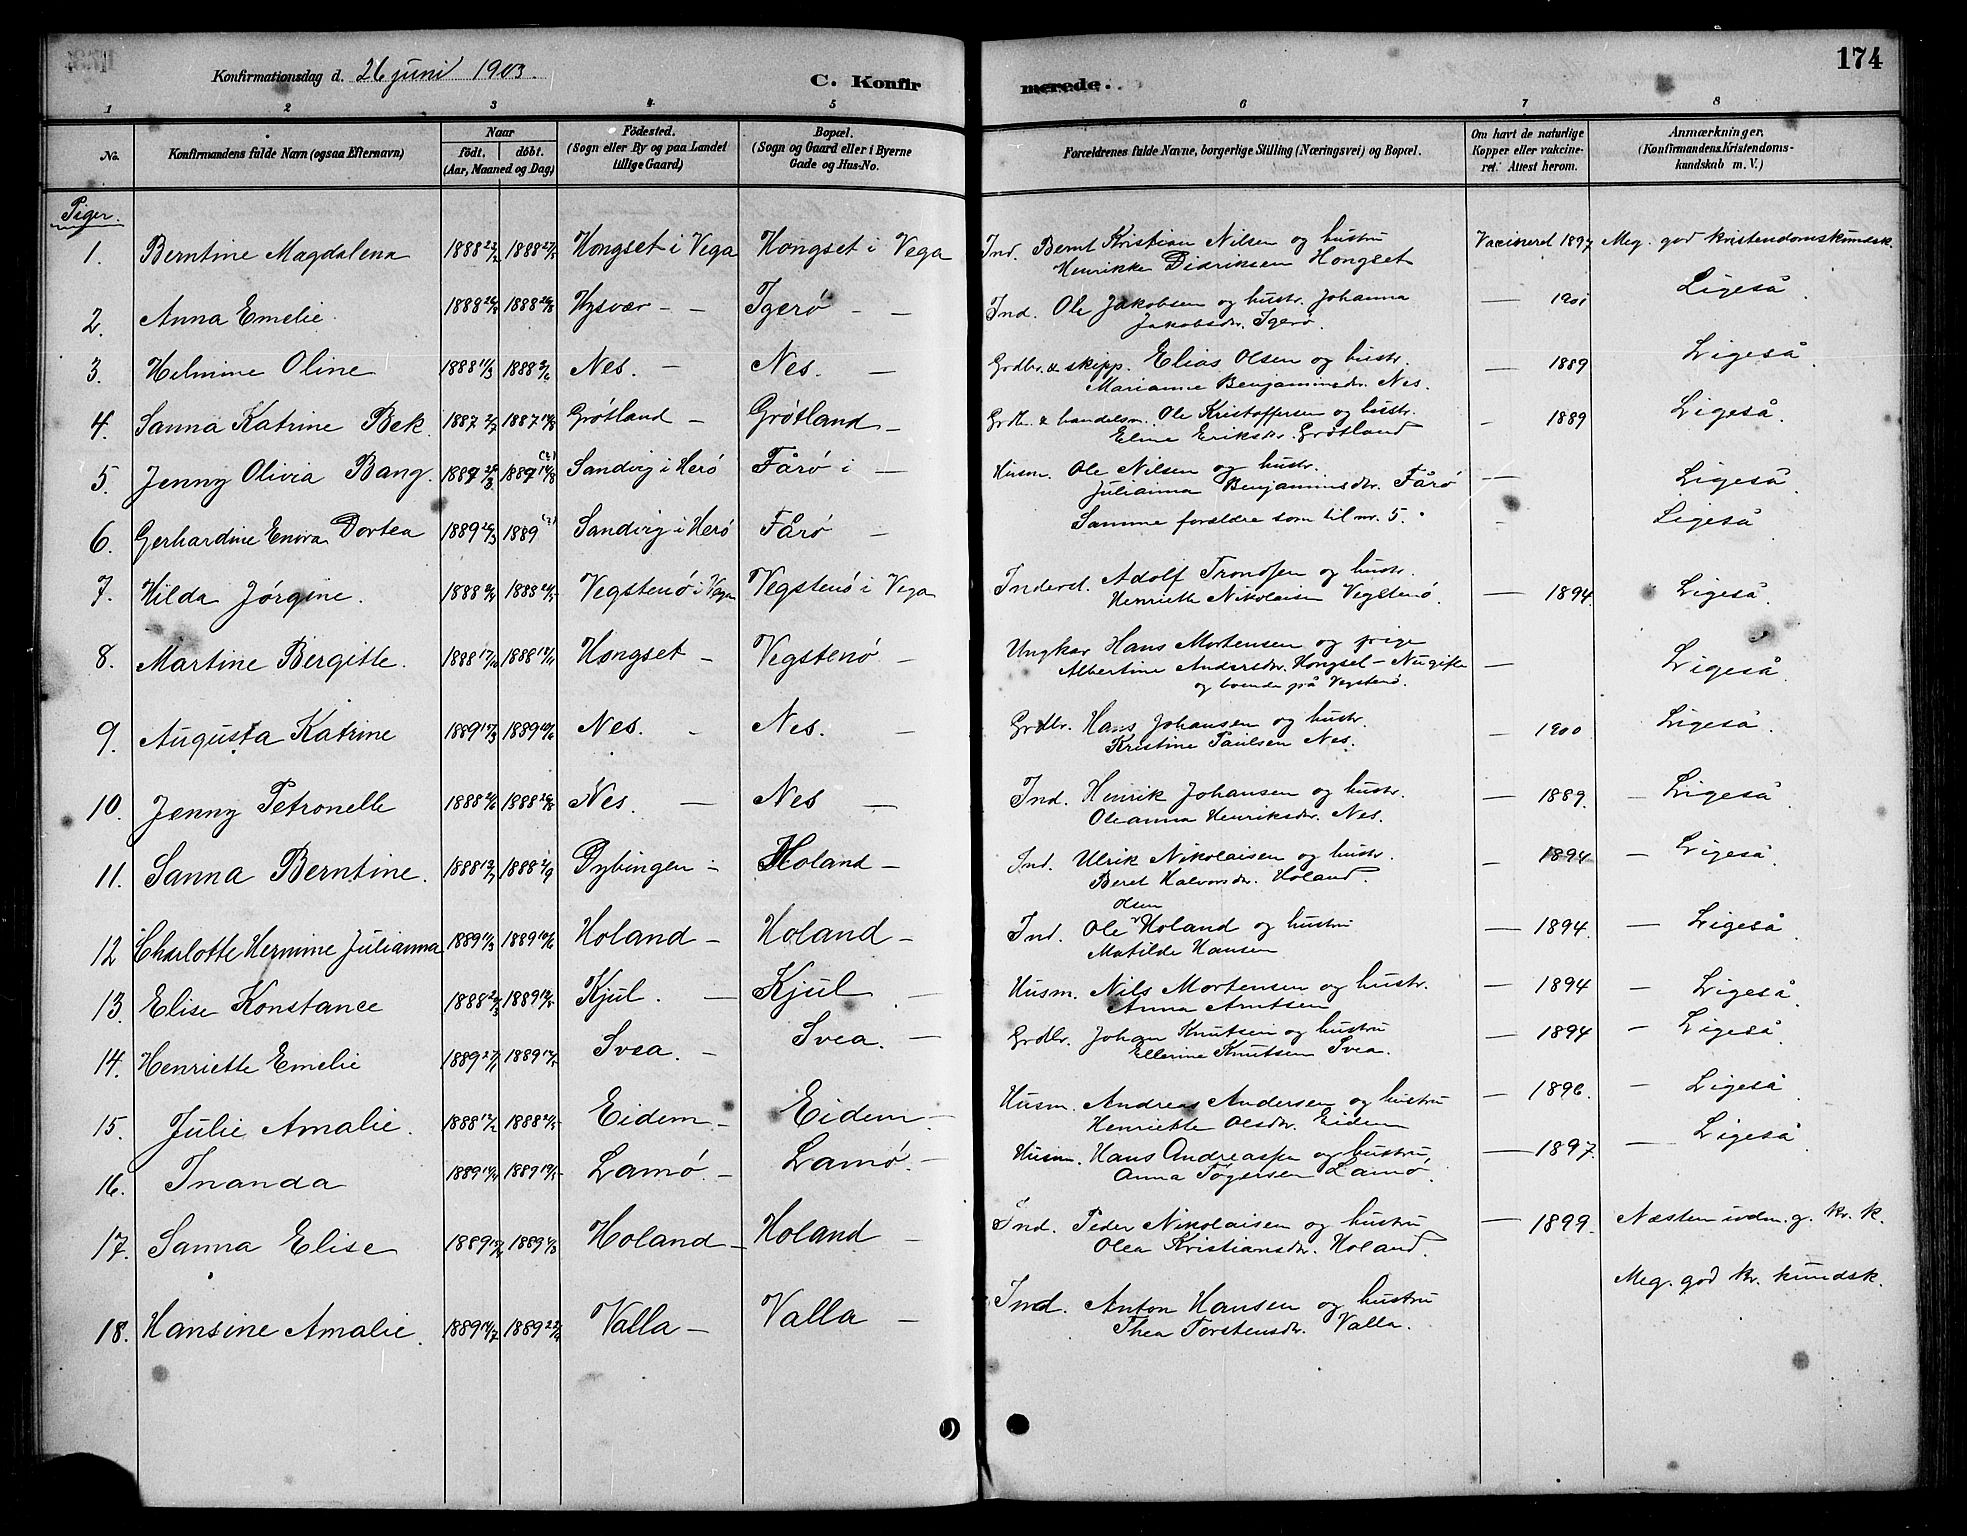 174
Konfirmationsdag d. 26 juni 1903.
C. Konfirmerede.
1 2 3 4 5 6 7 8
No.
Konfirmandens fulde Navn (ogsaa Efternavn)
Naar
födt, döbt.
(Aar, Maaned og Dag)
Födested.
(Sogn eller By og paa Landet
tillige Gaard)
Bopæl.
(Sogn og Gaard eller i Byerne
Gade og Hus-No.
Forældrenes fulde Navne, borgerlige Stilling (Næringsvei) og Bopæl.
Om havt de naturlige
Kopper eller vakcine-
ret. Attest herom.
Anmærkninger,
(Konfirmandens Kristendoms-
kundskab m. V.)
Piger.
1. Berntine Magdalena 1888 1888 Hongset i Vega Hongset i Vega Ind. Bernt Kristian Nilsen og hustru Vaccineret 1897 Meg. god kristendomskundsk.
Henrikke Didriksen Hongset
2. Anna Emelie 1888 1888 Hysvær – – Igerø – – Ind. Ole Jakobsen og hustr. Johanna — 1901 Ligeså.
Jakobsdr. Igerø.
3. Helmine Oline 1888 11/3 1888 Nes. – Nes. – Grdbr. & skipp. Elias Olsen og hustr. — 1889 Ligeså.
Marianne Benjaminsdr. Nes.
4. Sanna Katrine Bek. 1887 1887 Grøtland – Grøtland – Grdb. & handelsm. Ole Kristoffersen og hustr. – 1889 Ligeså.
Eline Eriksdr. Grøtland
5. Jenny Olivia Bang. 1889 1889 Sandvig i Herø Fårø i – Husm. Ole Nilsen og hustr. — Ligeså.
Julianna Benjaminsdr. Fårø
6. Gerhardine Enora Dortea 1889 1889 Sandvig i Herø Fårø – Samme forældre som til nr. 5. – Ligeså
7. Hilda Jørgine. 1888 1888 Vegstenø i Vega Vegstenø i Vega Inderst. Adolf Trondsen og hustr. — 1894. Ligeså.
Henriette Nikolaisen Vegstenø.
8. Martine Bergitte. 1888 1888 Hongset – Vegstenø – Ungkar Hans Mortensen og pige — Ligeså.
Albertine Andersdr. Hongset – Nu gifte
og boende på Vegstenø.
9. Augusta Katrine 1889 1889 Nes. – Nes. – Grdbr. Hans Johansen og hustr. – 1900 Ligeså.
Kristine Paulsen Nes.
10. Jenny Petronelle 1888 1888 Nes. — Nes — Ind. Henrik Johansen og hustr. — 1889. – Ligeså.
Oleanna Henriksdr. Nes.
11. Sanna Berntine. 1888 1888 Dybingen – Holand – Ind. Ulrik Nikolaisen og hustr. – 1894 – Ligeså.
Beret Halvorsdr. Holand.
12 Charlotte Hermine Julianna 1889 11/3 1889 Holand – Holand – Ind. Ole Olsen Holand og hustru — 1894. – Ligeså.
Matilde Hansen
13. Elise Konstance 1888 1889 Kjul. – Kjul – Husm. Nils Mortensen og hustr. — 1894 – Ligeså.
Anna Arntsen
14. Henriette Emelie 1889 1889 Svea. – Svea. – Grdbr. Johan Knutsen og hustru — 1894 – Ligeså.
Ellerine Knutsen Svea.
15. Julie Amalie. 1888 1888 Eidem – Eidem – Husm. Andreas Andersen og hustru — 1896. – Ligeså.
Henriette Olsdr. Eidem
16. Inanda 1889 1889 Lamø. – Lamø. – Husm. Hans Andreassen og hustru, — 1897. — Ligeså.
Anna Togersen Lamø.
17. Sanna Elise 1889 1889 Holand – Holand – Ind. Peder Nikolaisen og hustru — 1899. Næsten udm. g. kr. k.
Olea Kristiansdr. Holand.
18. Hansine Amalie. 1889 1889 Valla – Valla – Ind. Anton Hansen og hustru Meg. god kr. kundsk.
Thea Torstensdr. Valla.